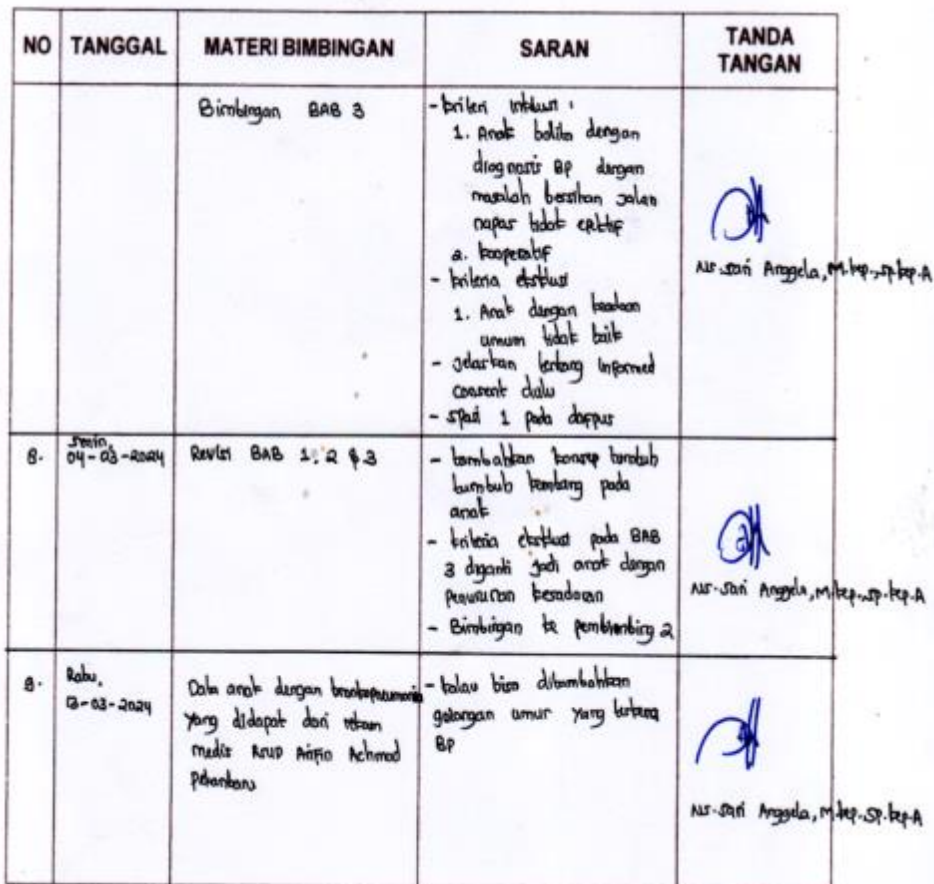 NO TANGGAL MATERI BIMBINGAN SARAN TANDA TANGAN
Bimbingan BAB 3
- kriteri inklusi :
1. Anak balita dengan
diagnosis BP dengan
masalah bersihan jalan
napas tidak efektif
2. kooperatif
- kriteria eksklusi
1. Anak dengan keadaan
umum tidak baik
- jelaskan tentang informed
consent dulu
- spasi 1 pada dafpus
Ns. Sari Anggela, M.kep., sp.kep.A
8. Senin,
04-03-2024
Revisi BAB 1, 2 & 3
- tambahkan konsep
tumbuh kembang pada
anak
- kriteria eksklusi pada BAB
3 diganti jadi anak dengan
penurunan kesadaran
- Bimbingan ke pembimbing 2
Ns. Sari Anggela, M.kep., sp.kep.A
9. Rabu,
13-03-2024
Data anak dengan bronkopneumonia
yang didapat dari rekam
medis RSUD Arifin Achmad
Pekanbaru
- kalau bisa ditambahkan
golongan umur yang terkena
BP
Ns. Sari Anggela, M.kep. Sp.kep.A